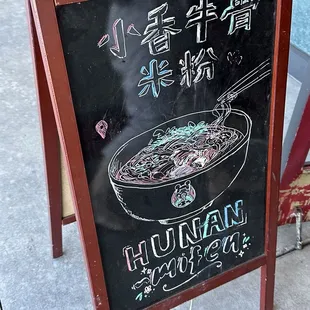 小香牛骨
米粉
HUNAN
mifen